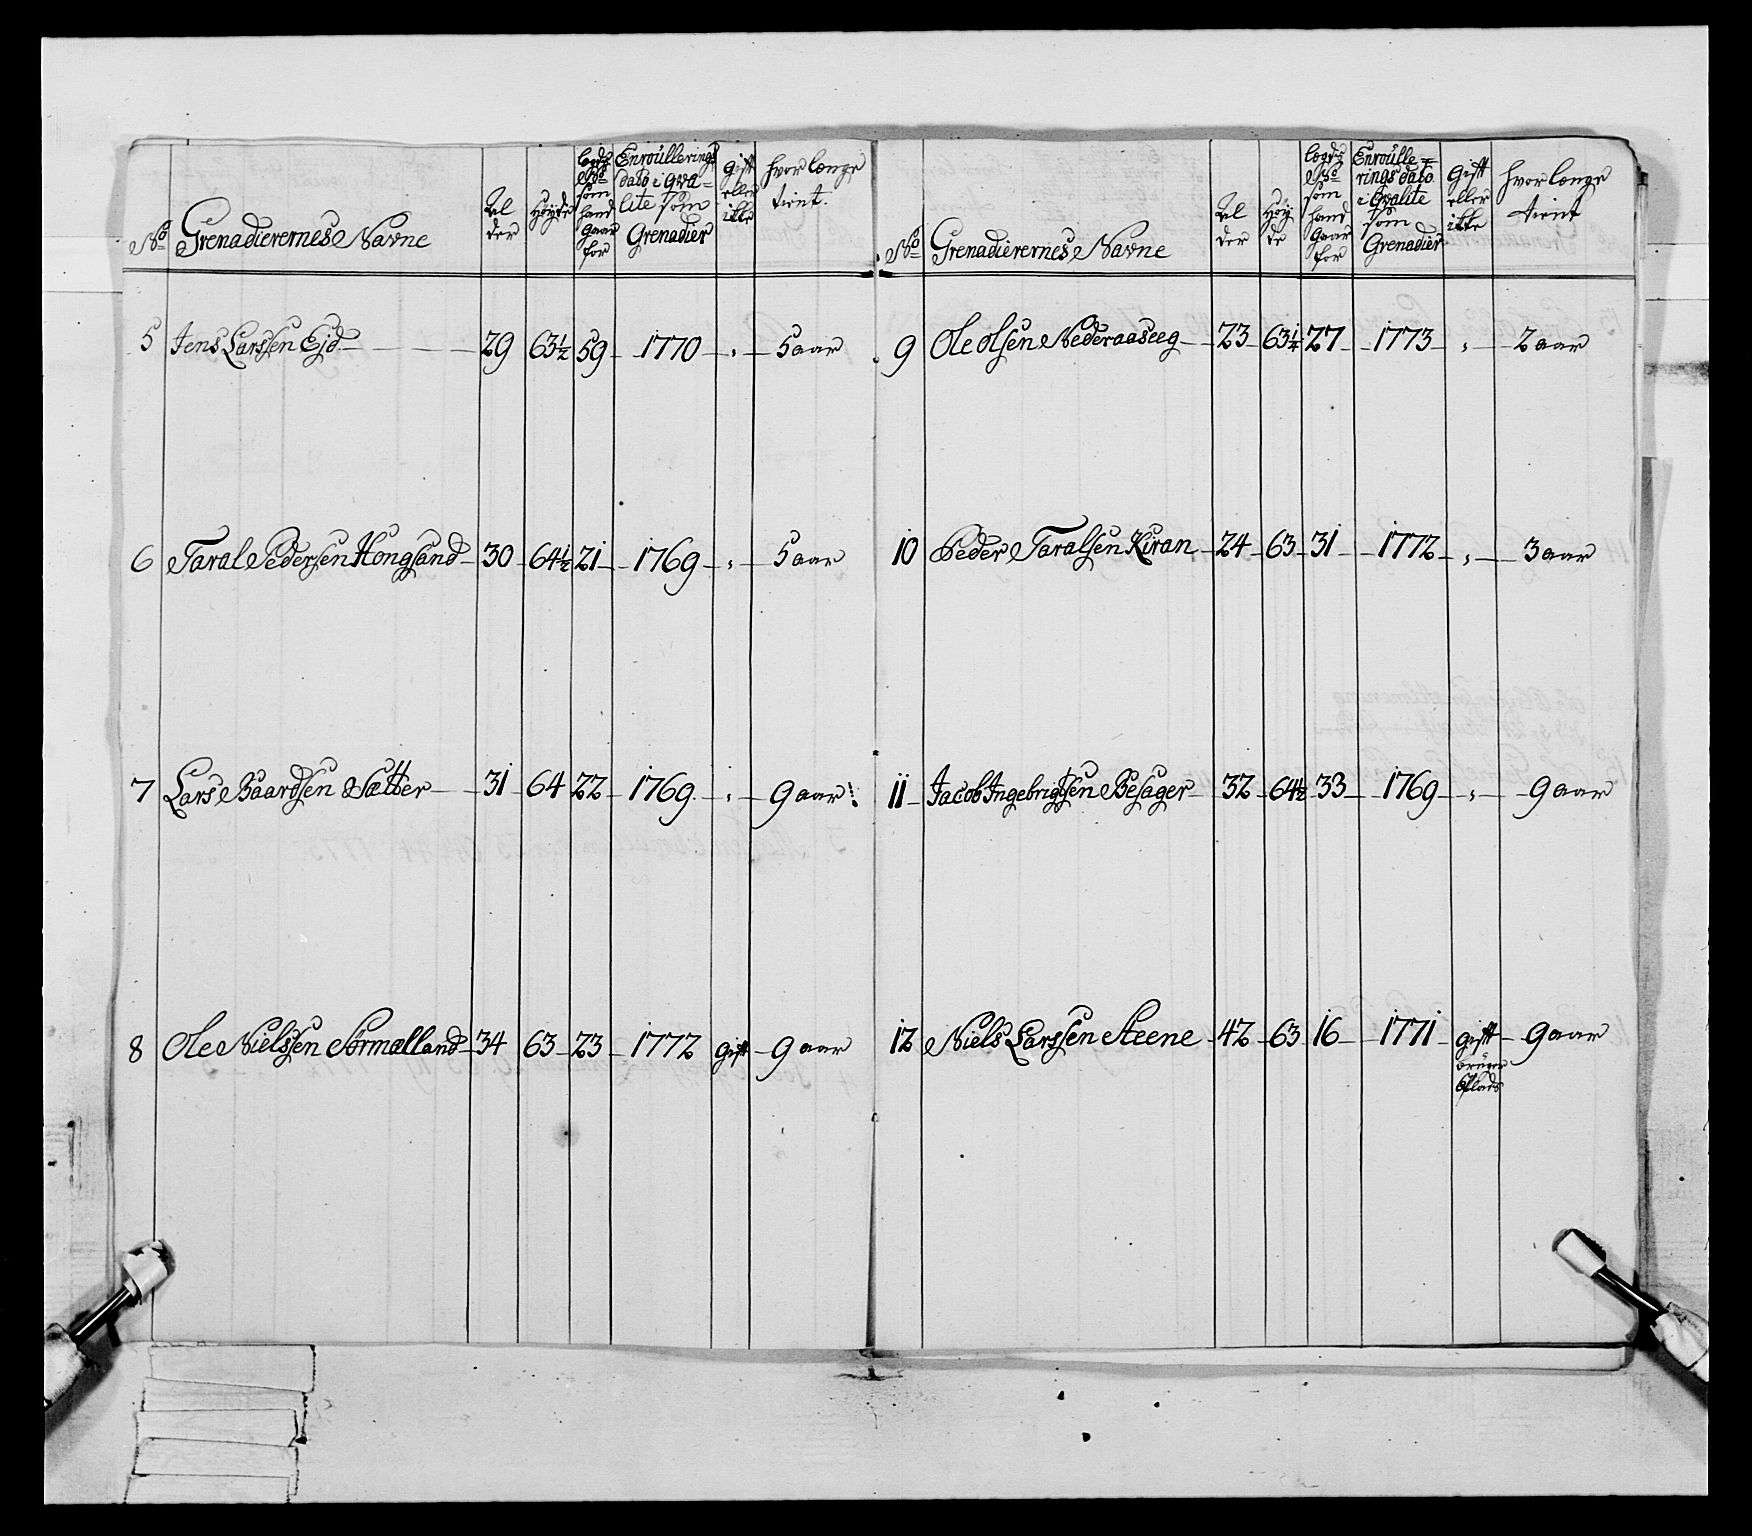 No Grenadierernes Navne Al der Høyde Lægds No som hand gaar for Enroullerings dato i qva= lite som Grenadier gift eller ikke hvor længe tient.
5 Jens Larssen Ejd 29 63½ 59 1770 " 5 aar
6 Taral Pedersen Hongsand 30 64½ 21 1769 " 5 aar
7 Lars Baardsen Sætter 31 64 22 1769 " 9 aar
8 Ole Nielssen Normælland 34 63 23 1772 gift 9 aar
No Grenadierernes Navne Al der Høy de Lægds No som hand gaar for Enroulle= rings dato i Qvalite som Grenadier Gift eller ikke hvor længe tient
9 Ole Olsen Nederaaseeg 23 63¼ 27 1773 " 2 aar
10 Peder Taralsen Kiran 24 63 31 1772 " 3 aar
11 Jacob Ingebrigtsen Besager 32 64½ 33 1769 " 9 aar
12 Niels Larssen Steene 42 63 16 1771 gift 9 aar
bruger
Plads